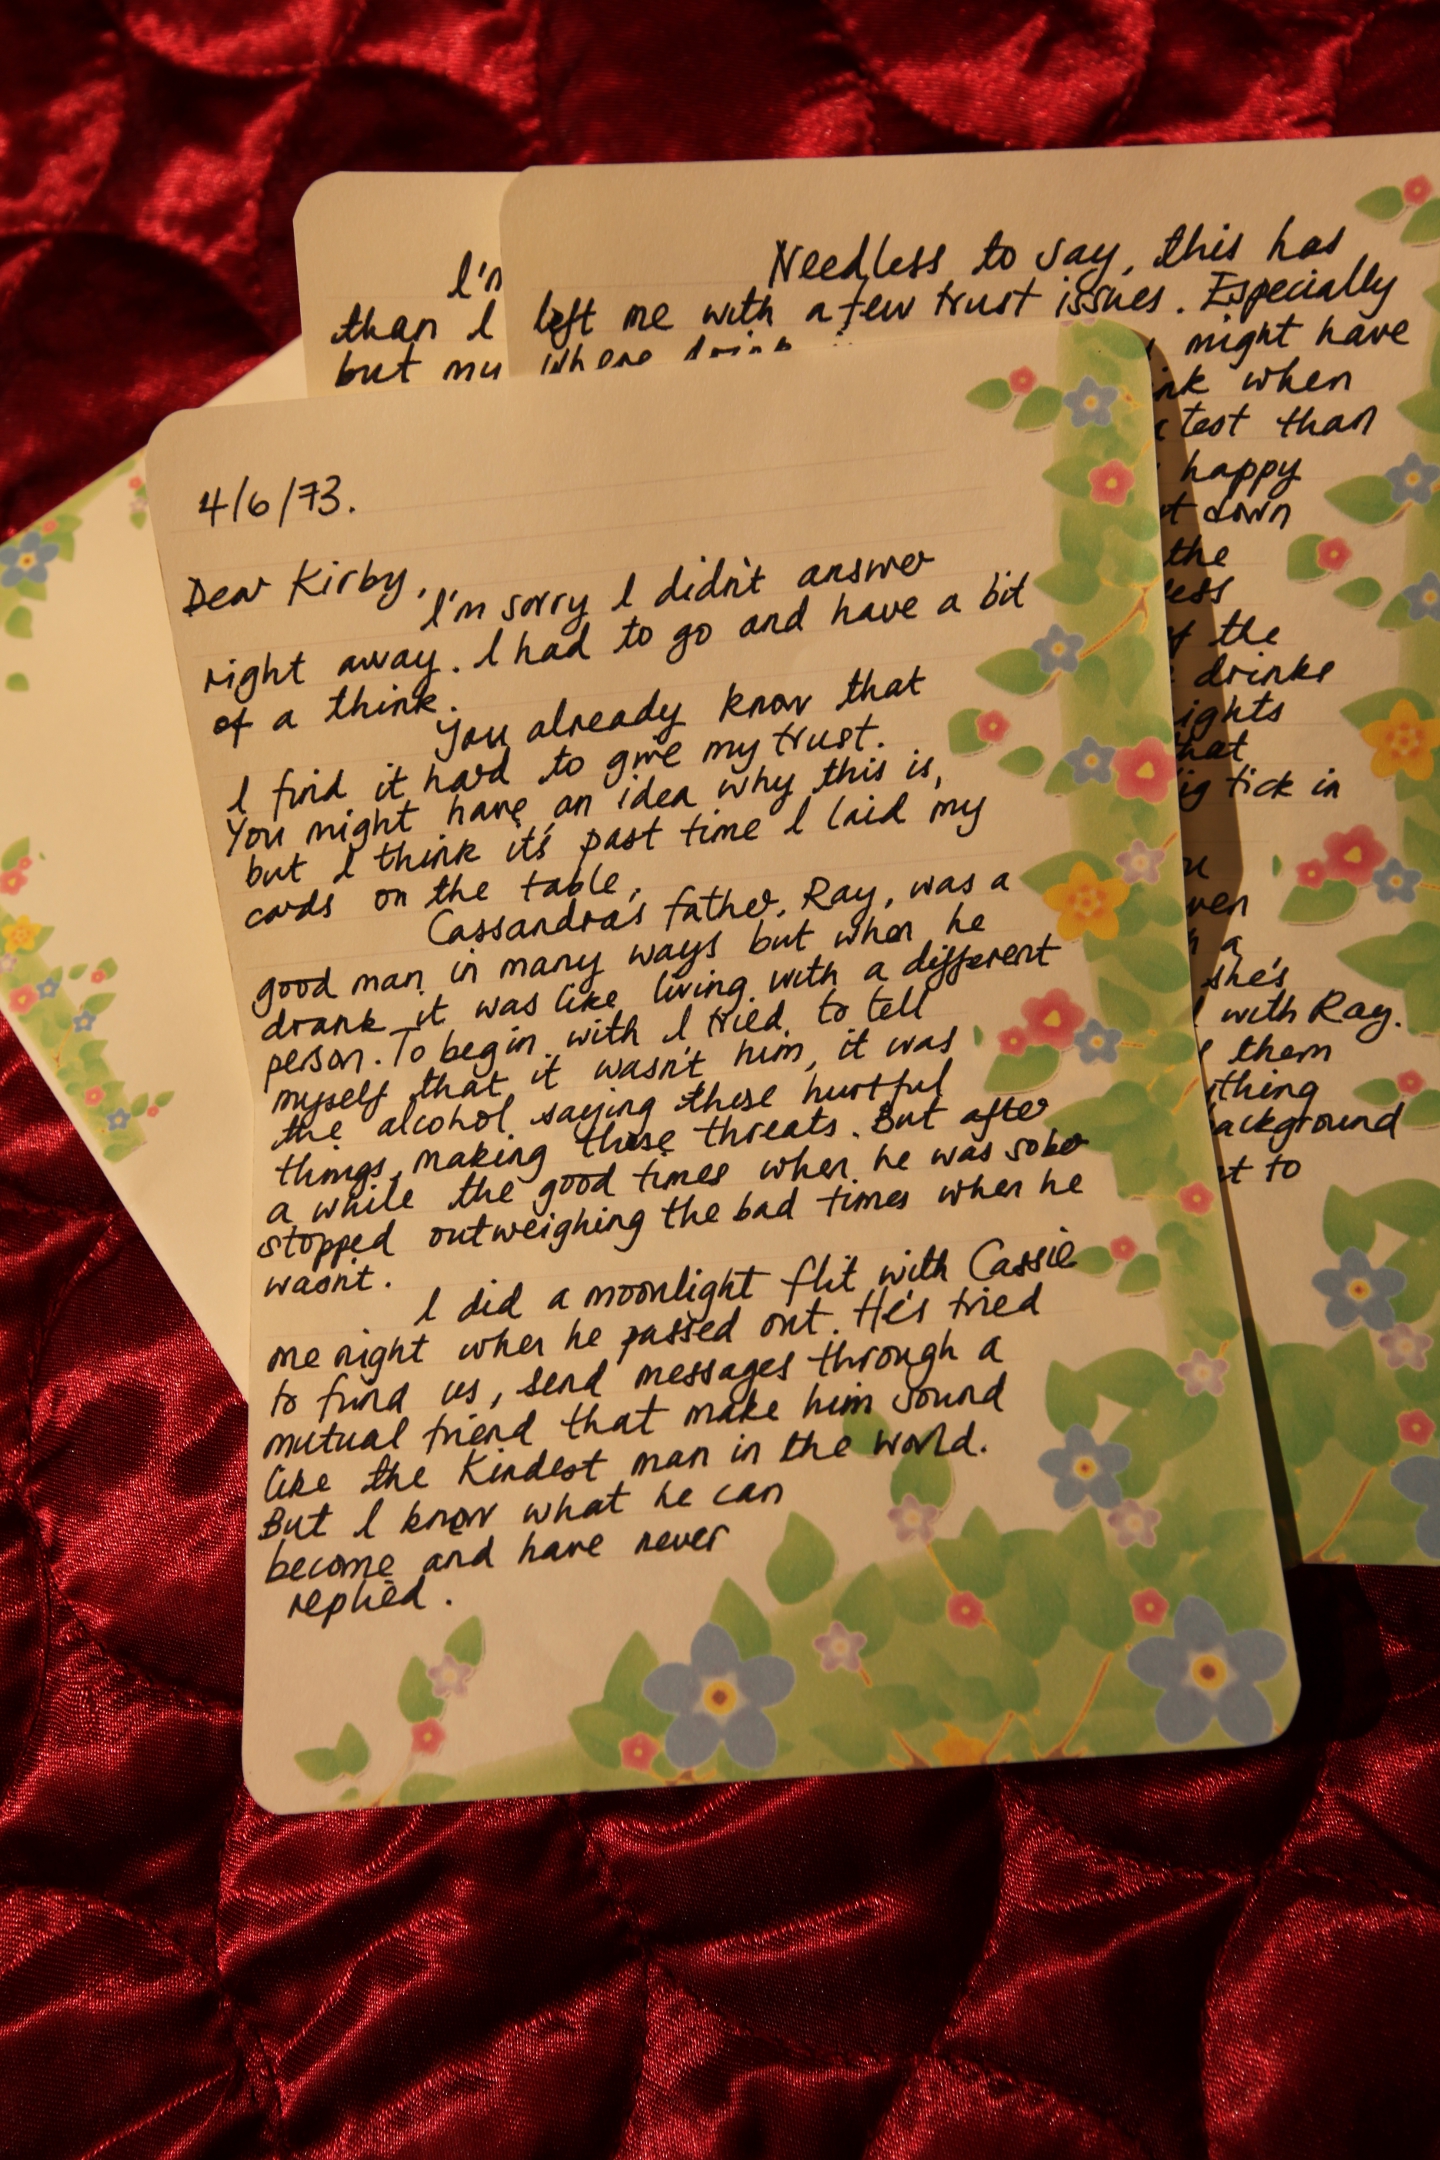 4/6/73.
Dear Kirby,
I'm sorry I didn't answer
right away. I had to go and have a bit
of a think.
You already know that
I find it hard to give my trust.
You might have an idea why this is,
but I think it's past time I laid my
cards on the table.
Cassandra's father, Ray, was a
good man in many ways but when he
drank it was like living with a different
person. To begin with I tried to tell
myself that it wasn't him, it was
the alcohol saying these hurtful
things, making those threats. But after
a while the good times when he was sober
stopped outweighing the bad times when he
wasn't.
I did a moonlight flit with Cassie
one night when he passed out. He's tried
to find us, send messages through a
mutual friend that make him sound
like the kindest man in the world.
But I know what he can
become and have never
replied.
Needless to say, this has
left me with a few trust issues. Especially
where drink
might have
when
test than
happy
down
the
of the
drinks
tick in
a
she's
with Ray.
them
to
I'm
than I
but my